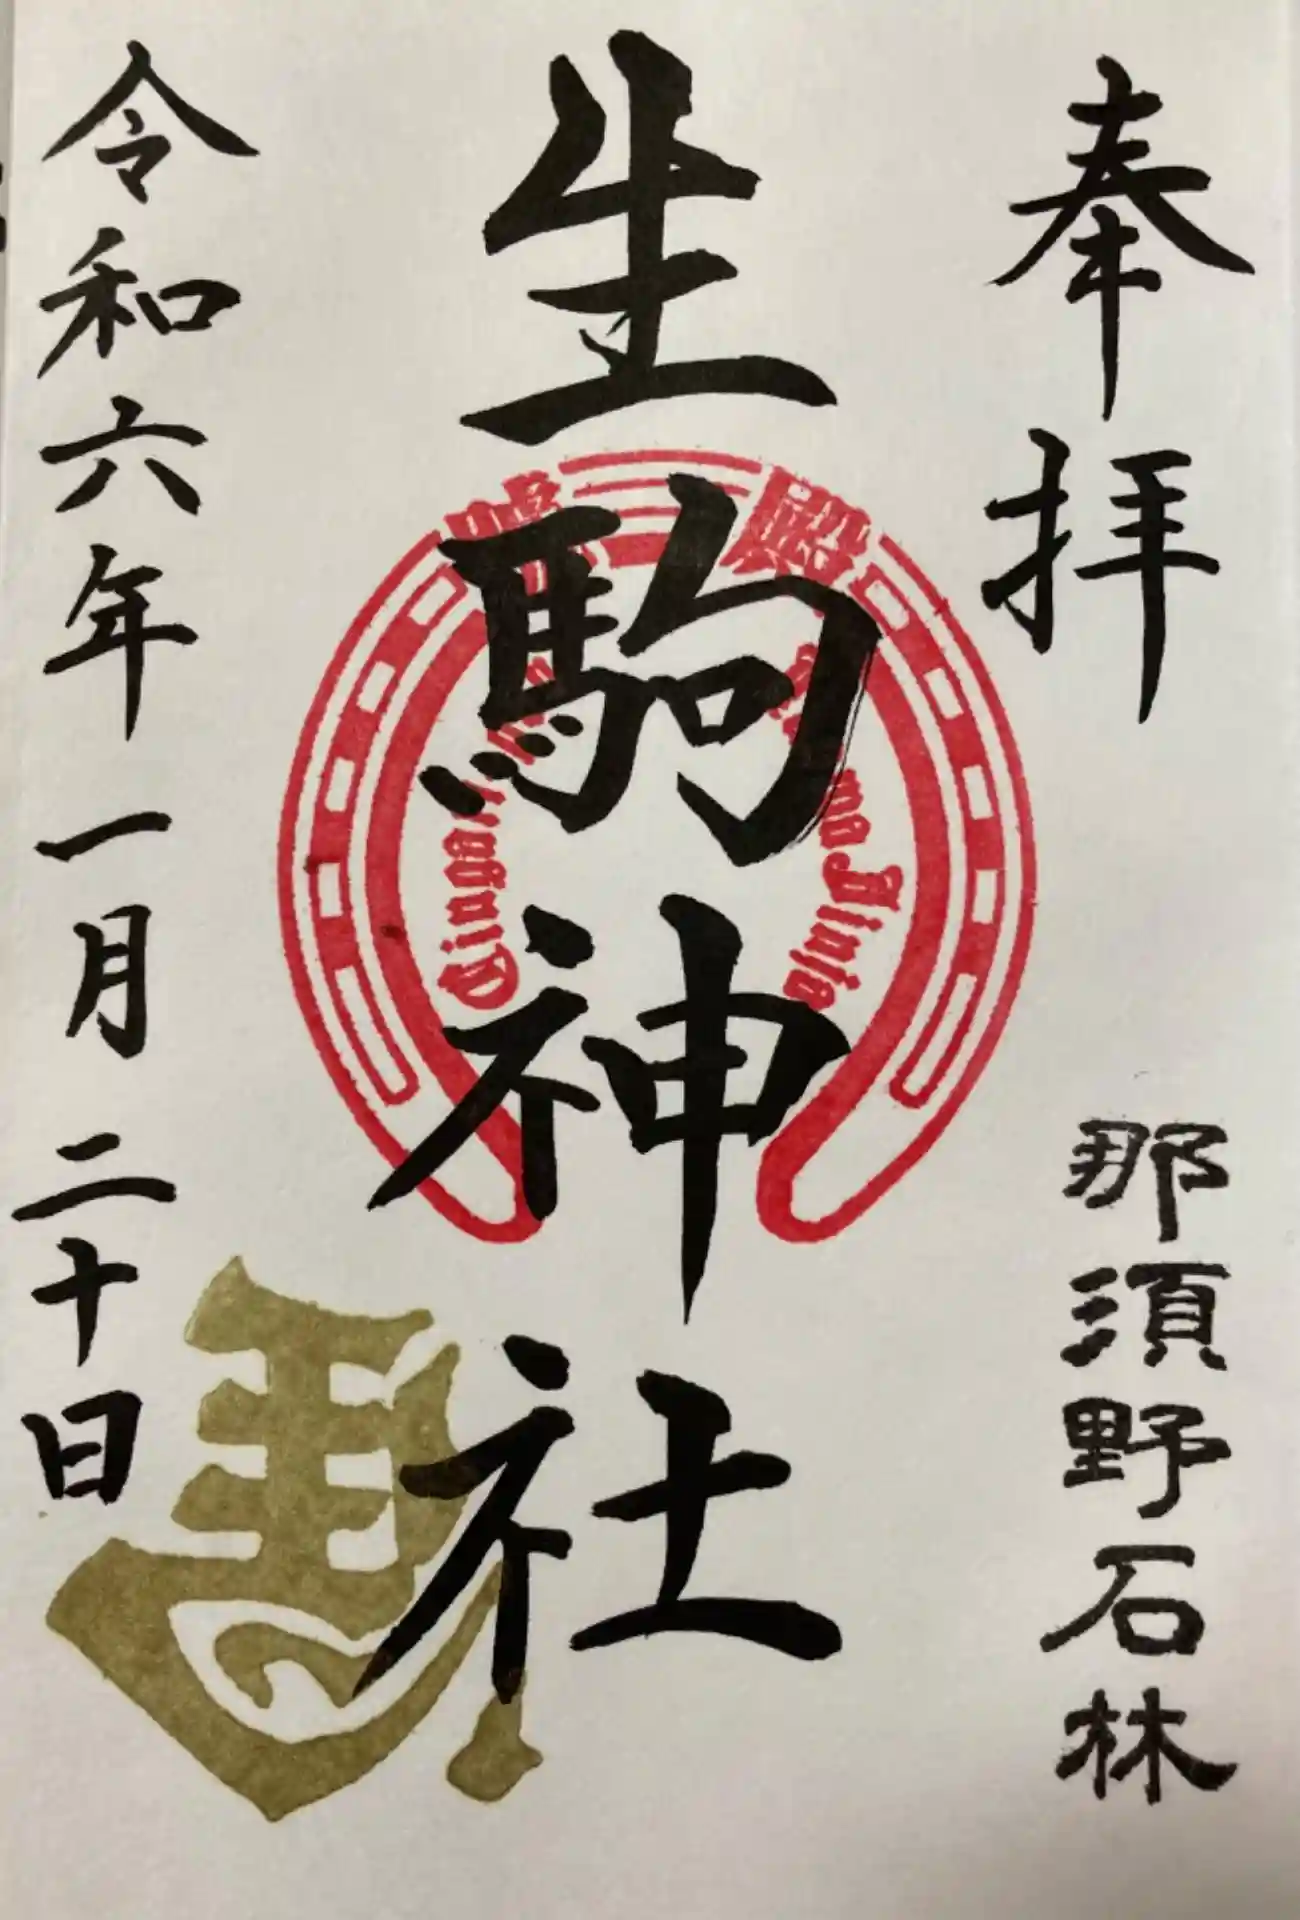 奉拝
那須野石林
生駒神社
令和六年一月二十日
Jinja